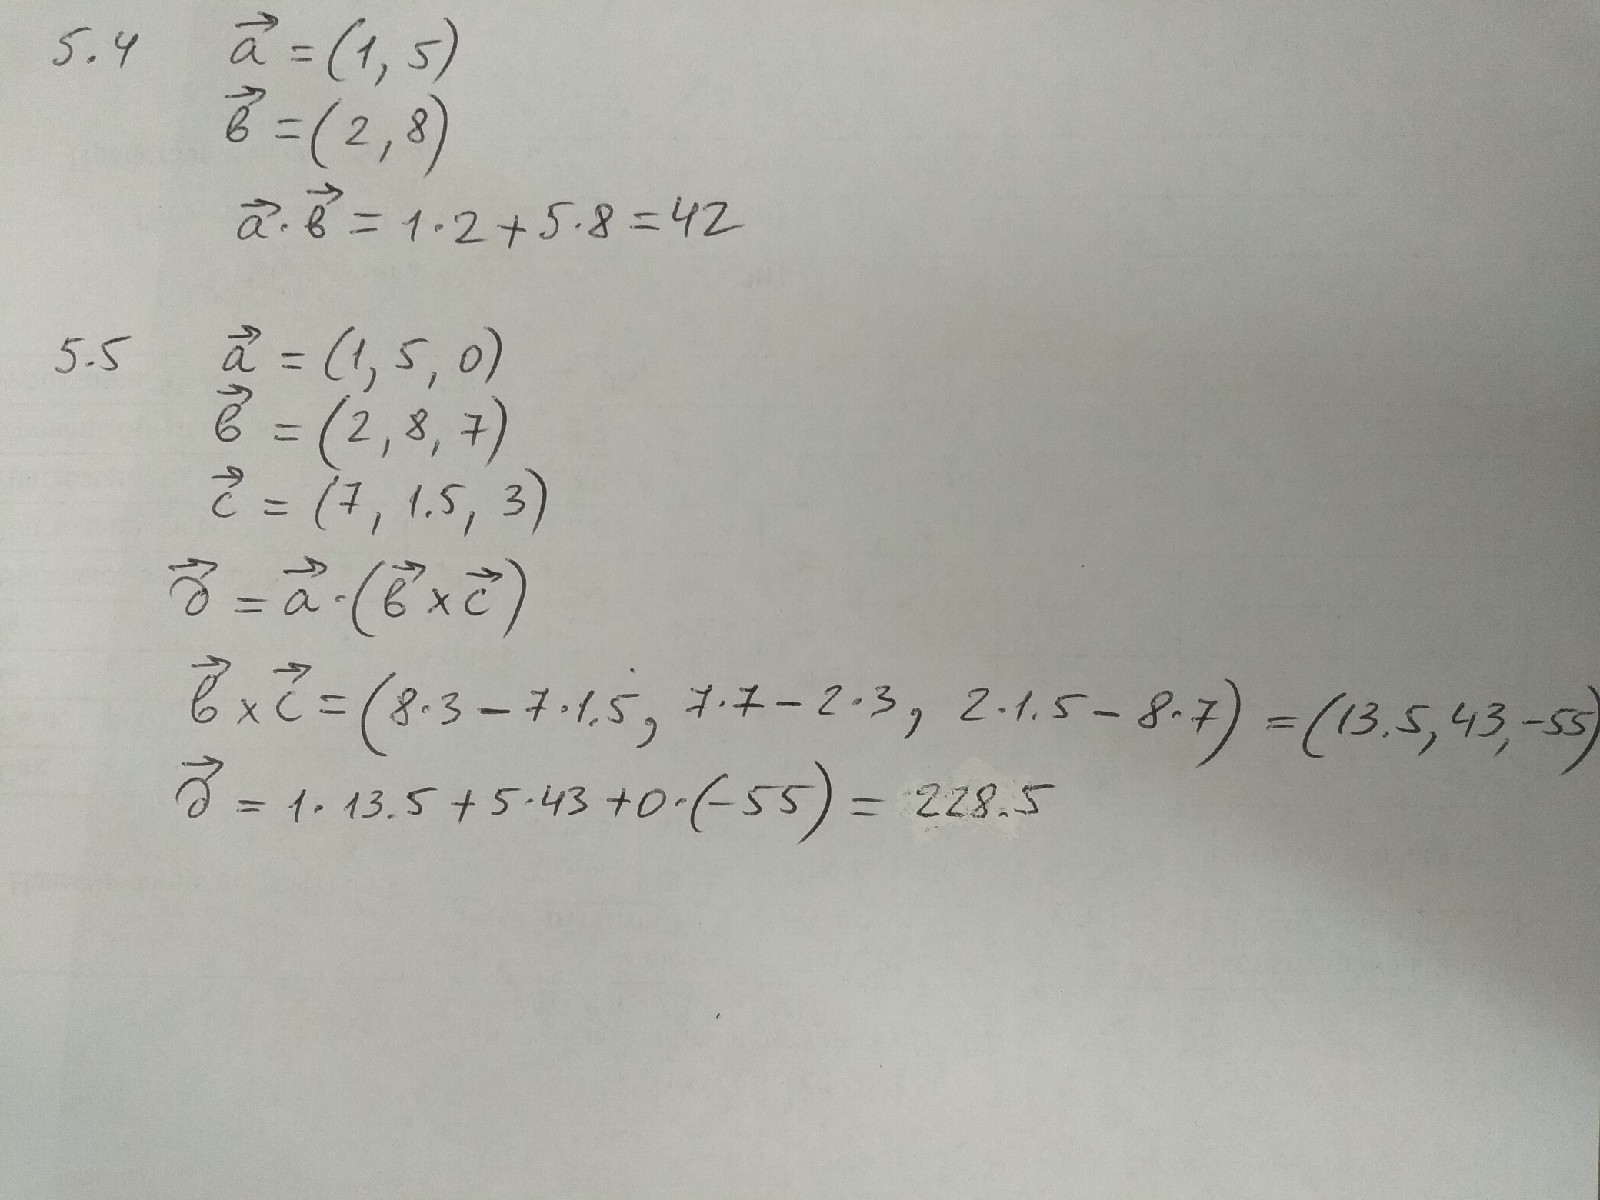 5.4 a⃗ = (1, 5)
в⃗ = (2, 8)
a⃗·в⃗ = 1·2+5·8 = 42
5.5 a⃗ = (1, 5, 0)
в⃗ = (2, 8, 7)
c⃗ = (7, 1.5, 3)
∂⃗ = a⃗·(в⃗×c⃗)
в⃗×c⃗ = (8·3−7·1.5, 7·7−2·3, 2·1.5−8·7) = (13.5, 43, −55)
∂⃗ = 1·13.5+5·43+0·(−55) = 228.5